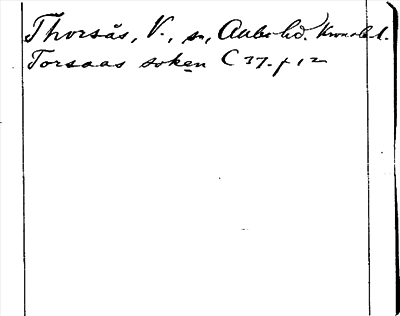 Thorsås, V., sn, Allbo hd. Kronob. l.
Torsaas soken C 37. f 12